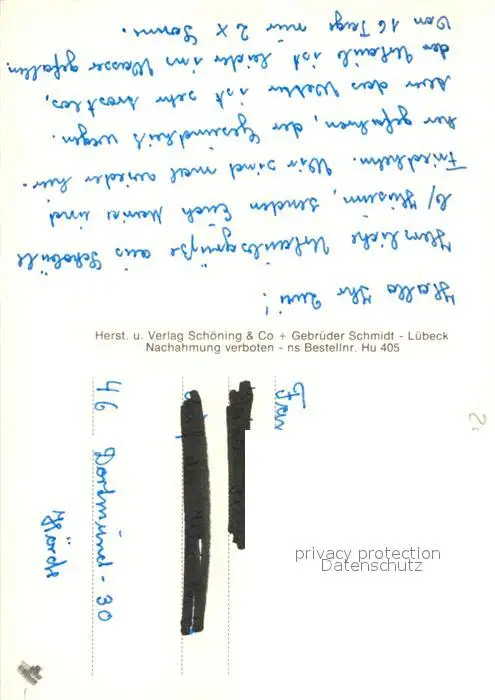 Hallo Ihr Zwei!
Herzliche Urlaubsgrüße aus Schobüll
b/Husum, senden Euch Marie und
Friedhelm. Wir sind mal wieder hier
her gefahren, der Gesundheit wegen.
Nur das Wetter ist sehr trostlos,
der Urlaub ist leider ins Wasser gefallen.
Von 16 Tage nur 2 x Sonne.
Herst. u. Verlag Schöning & Co + Gebrüder Schmidt - Lübeck
Nachahmung verboten - ns Bestellnr. Hu 405
Fam
46 Dortmund - 30
Hörde
privacy protection
Datenschutz